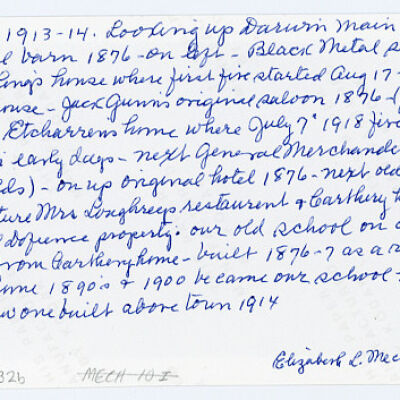 1913-14. Looking up Darwin main
barn 1876 - on left - Black Metal
house where first fire started Aug 17-
ouse - Jack Gunn's original saloon 1876 -
Etcharrens home where July 7" 1918 fire
early days - next General Merchandi
ds) - on up original hotel 1876 - next old
ture Mrs Loughreys restaurant & Carthery h
Defience property. our old school on
rom Cartheryhome - built 1876-7 as a
ome 1890's & 1900 became our school -
w one built above town 1914
Elizabeth L. Mec
32b MECH 10 I